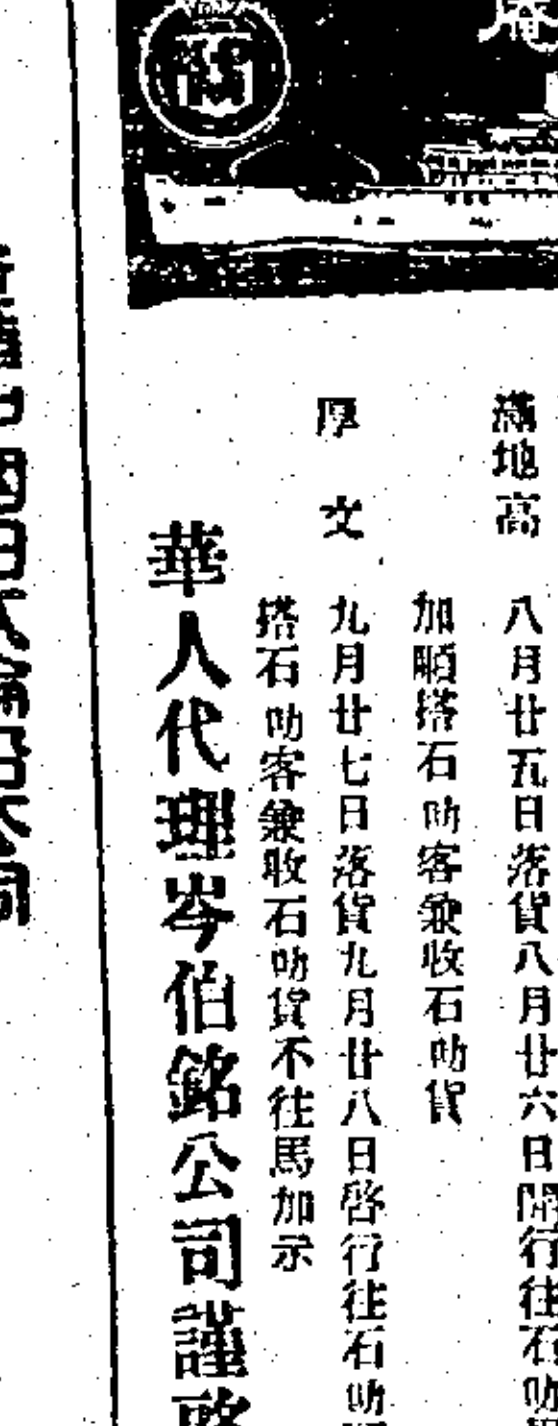 滿地高
八月廿五日落貨八月廿六日開行往石叻
加㖭搭石叻客兼收石叻貨
厚文
九月廿七日落貨九月廿八日啓行往石叻
搭石叻客兼收石叻貨不往馬加示
華人代理岑伯銘公司謹啓